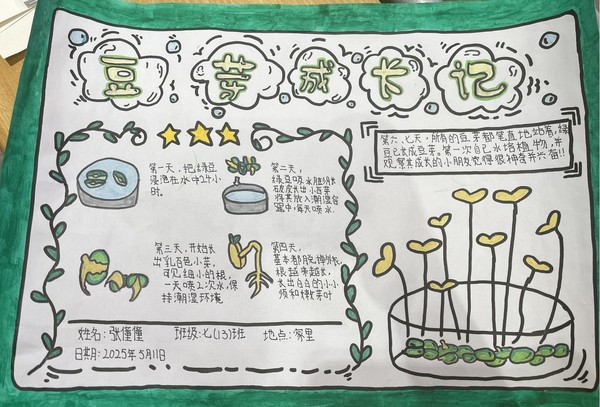 豆芽成长记
第一天，把绿豆
浸泡在水中24小
时。
第二天，
绿豆吸水胀饱
破皮长出小豆芽
将其放入潮湿容
器中，每天喷水。
第三天，开始长
出乳白色小芽，
可见细小的根，
一天喷2次水，保
持潮湿环境
第四天，
基本都脱掉外衣，
根越来越长，
长出白白的小小
须和嫩芽叶
第六、七天，所有的豆芽都笔直地站着，绿
豆已长成豆芽。第一次自己水培植物，并
观察其成长的小朋友觉得很神奇并兴奋!!
姓名：张僮僮 班级：七(13)班 地点：家里
日期：2025年5月11日